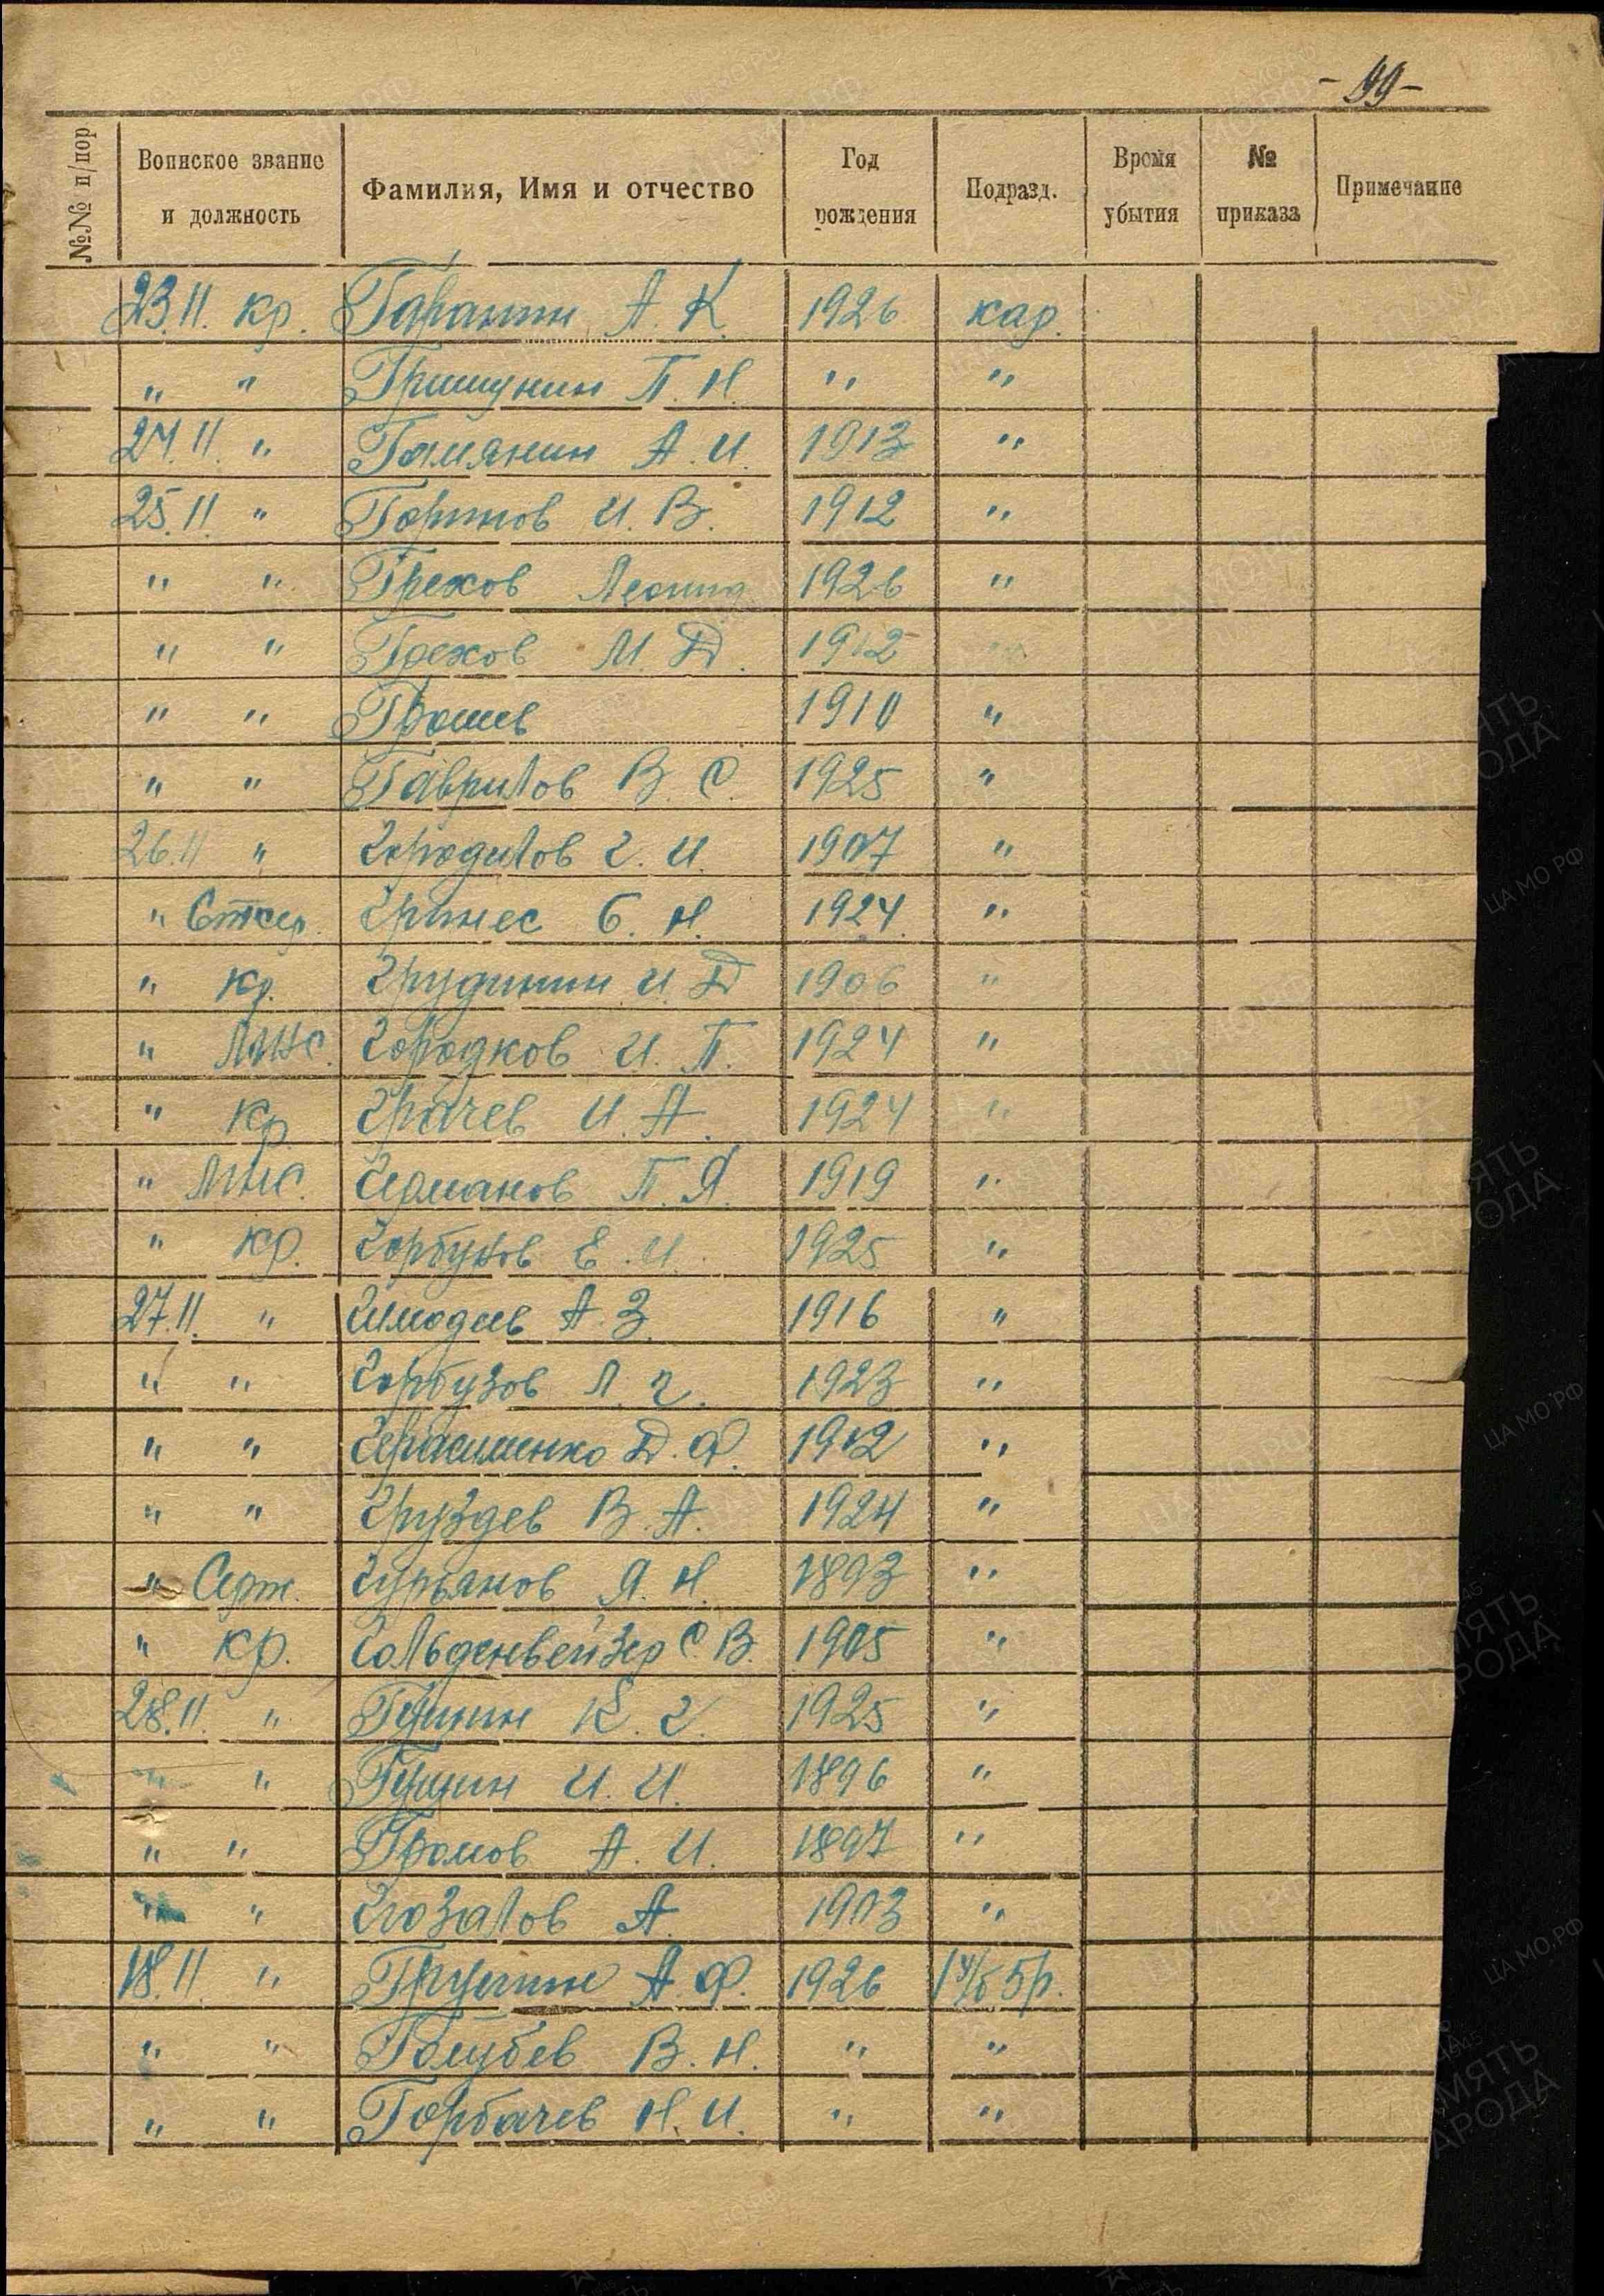 - 99 -
№№ п/пор Воинское звание и должность Фамилия, Имя и отчество Год рождения Подразд. Время убытия № приказа Примечание
23.11. кр. Гаранин А. К. 1926 кар.
" " Гришунин П. Н. " "
24.11. " Гамянин А. И. 1913 "
25.11. " Горшков И. В. 1912 "
" " Грехов Леонид 1926 "
" " Грехов М. Д. 1912
" " 1910 "
" " Гаврилов В. С. 1925 "
26.11 " Городилов Г. И. 1907 "
" Стсер. Гринес Б. Н. 1924 "
" кр. Грудинин И. Д 1906 "
" Городков И. П. 1924 "
" кр Грачев И. А. 1924 "
" Германов П. Я. 1919 "
" кр. Горбунов Е. И. 1925 "
27.11. " А. З. 1916 "
" " Горбузов Л. Г. 1923 "
" " Герасименко Д. Ф. 1912 "
" " Груздев В. А. 1924 "
" Серж. Гурьянов Я. Н. 1893 "
" кр. Гольденвейзер С. В. 1905 "
28.11. " К. Г. 1925 "
" " Гущин И. И. 1896 "
" " Громов А. И. 1897 "
" " А. 1903 "
18.11. " А. Ф. 1926
" " Голубев В. Н. " "
" " Горбачев Н. И. " "